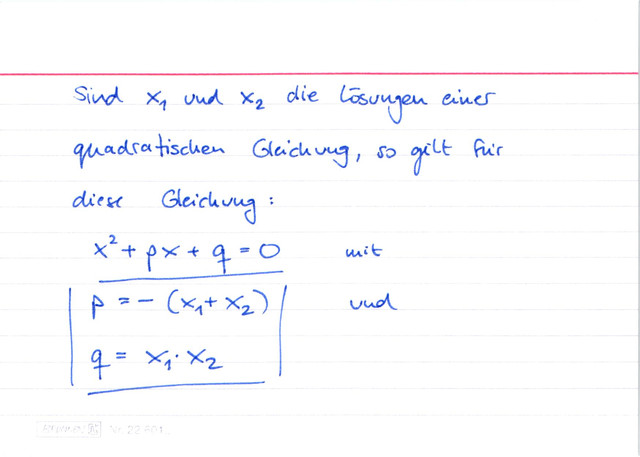 Sind x₁ und x₂ die Lösungen einer
quadratischen Gleichung, so gilt für
diese Gleichung:
x² + px + q = 0 mit
p = - (x₁ + x₂) und
q = x₁ · x₂